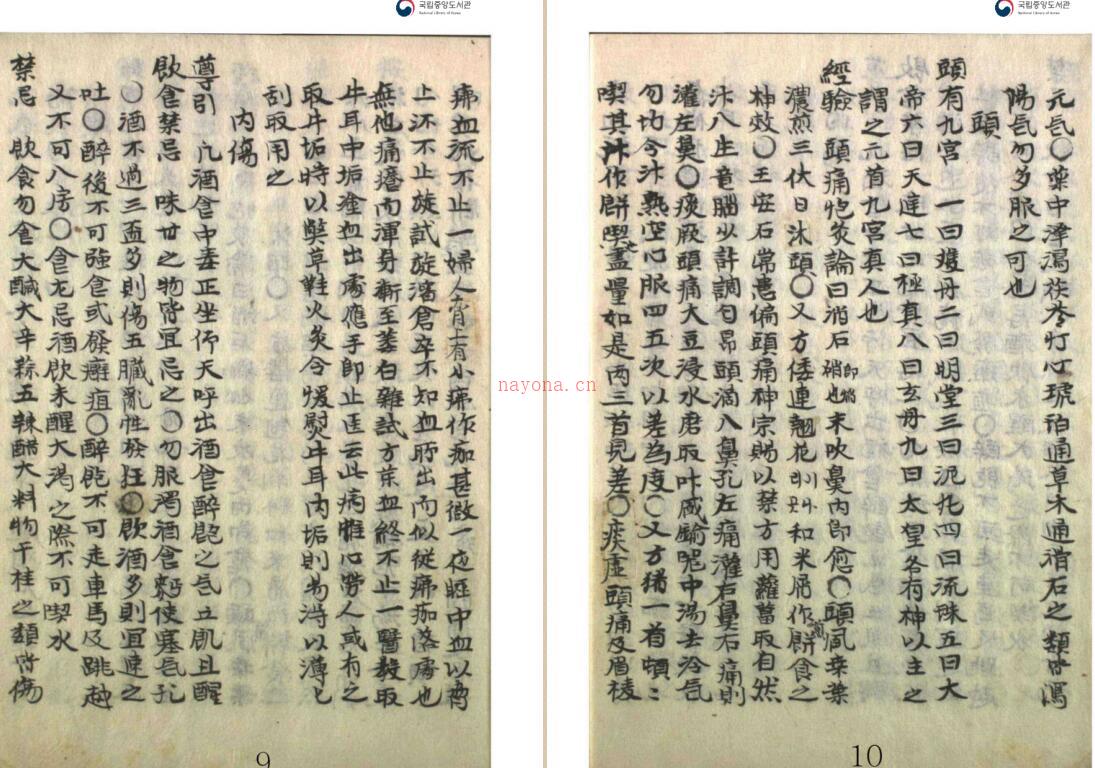 국립중앙도서관
National Library of Korea
血流不止一婦人有小作痂甚微一夜睡中血以
止还不止旋試旋滀倉卒不知血所出而似從痂落處也
無他痛而渾身漸至蒼白雜試方藥血終不止一醫教取
牛耳中垢塗血出處應手即止且云此病惟心勞人或有之
取牛垢時以草鞋火炙令煖熨牛耳內垢則易浔以薄匕
刮取用之
內傷
導引 凡酒食中毒正坐仰天呼出酒食醉飽之气立飢且醒
飲食禁忌 味甘之物皆宜忌之〇勿服濁酒食麪使塞气孔
〇酒不過三盃多則傷五臟亂性發狂〇飲酒多則宜速之
吐〇醉後不可强食或發癰疽〇醉飽不可走車馬及跳越
又不可入房〇食无忌酒飲未醒大渴之際不可喫水
禁忌 飲食勿食大鹹大辛蒜五辣醋大料物干桂之類皆傷
9
국립중앙도서관
National Library of Korea
元气〇藥中澤瀉猪苓灯心琥珀通草木通滑石之類皆瀉
陽气勿多服之可也
頭
頭有九宮 一曰雙丹二曰明堂三曰泥丸四曰流珠五曰大
帝六曰天庭七曰極真八曰玄丹九曰太皇各有神以主之
謂之元首九宮真人也
經驗 頭痛炮炙論曰硝石即焰硝也末吹鼻內即愈〇頭風桑葉
濃煎三伏日沐頭〇又方倭連翹花和米屑作煎餠食之
神效〇王安石常患偏頭痛神宗賜以禁方用蘿葍取自然
汁入生竜腦少許調勻昻頭滴入鼻孔左痛灌右鼻右痛則
灌左鼻〇痰厥頭痛大豆浸水磨取汁盛鍮器中湯去冷气
勿功令汁熟空心服四五次以差為度〇又方猪一首頓頓
喫其汁作餠喫盡量如是两三首見差〇痰虛頭痛及眉稜
10
nayona.cn